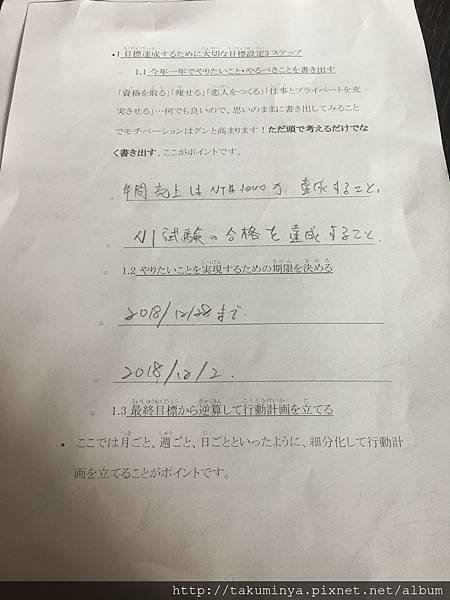 ・1 目標達成するために大切な目標設定3ステップ
○ 1.1 今年一年でやりたいこと・やるべきことを書き出す
「資格を取る」「痩せる」「恋人をつくる」「仕事とプライベートを充
実させる」…何でも良いので、思いのままに書き出してみること
でモチベーションはグンと高まります！ただ頭で考えるだけでな
く書き出す、ここがポイントです。
年間売上はNT$1000万 達成すること.
N1試験の合格を達成すること.
○ 1.2 やりたいことを実現するための期限を決める
2018/12/28まで.
2018/12/2.
○ 1.3 最終目標から逆算して行動計画を立てる
• ここでは月ごと、週ごと、日ごとといったように、細分化して行動計
画を立てることがポイントです。
http://takuminya.pixnet.net/album